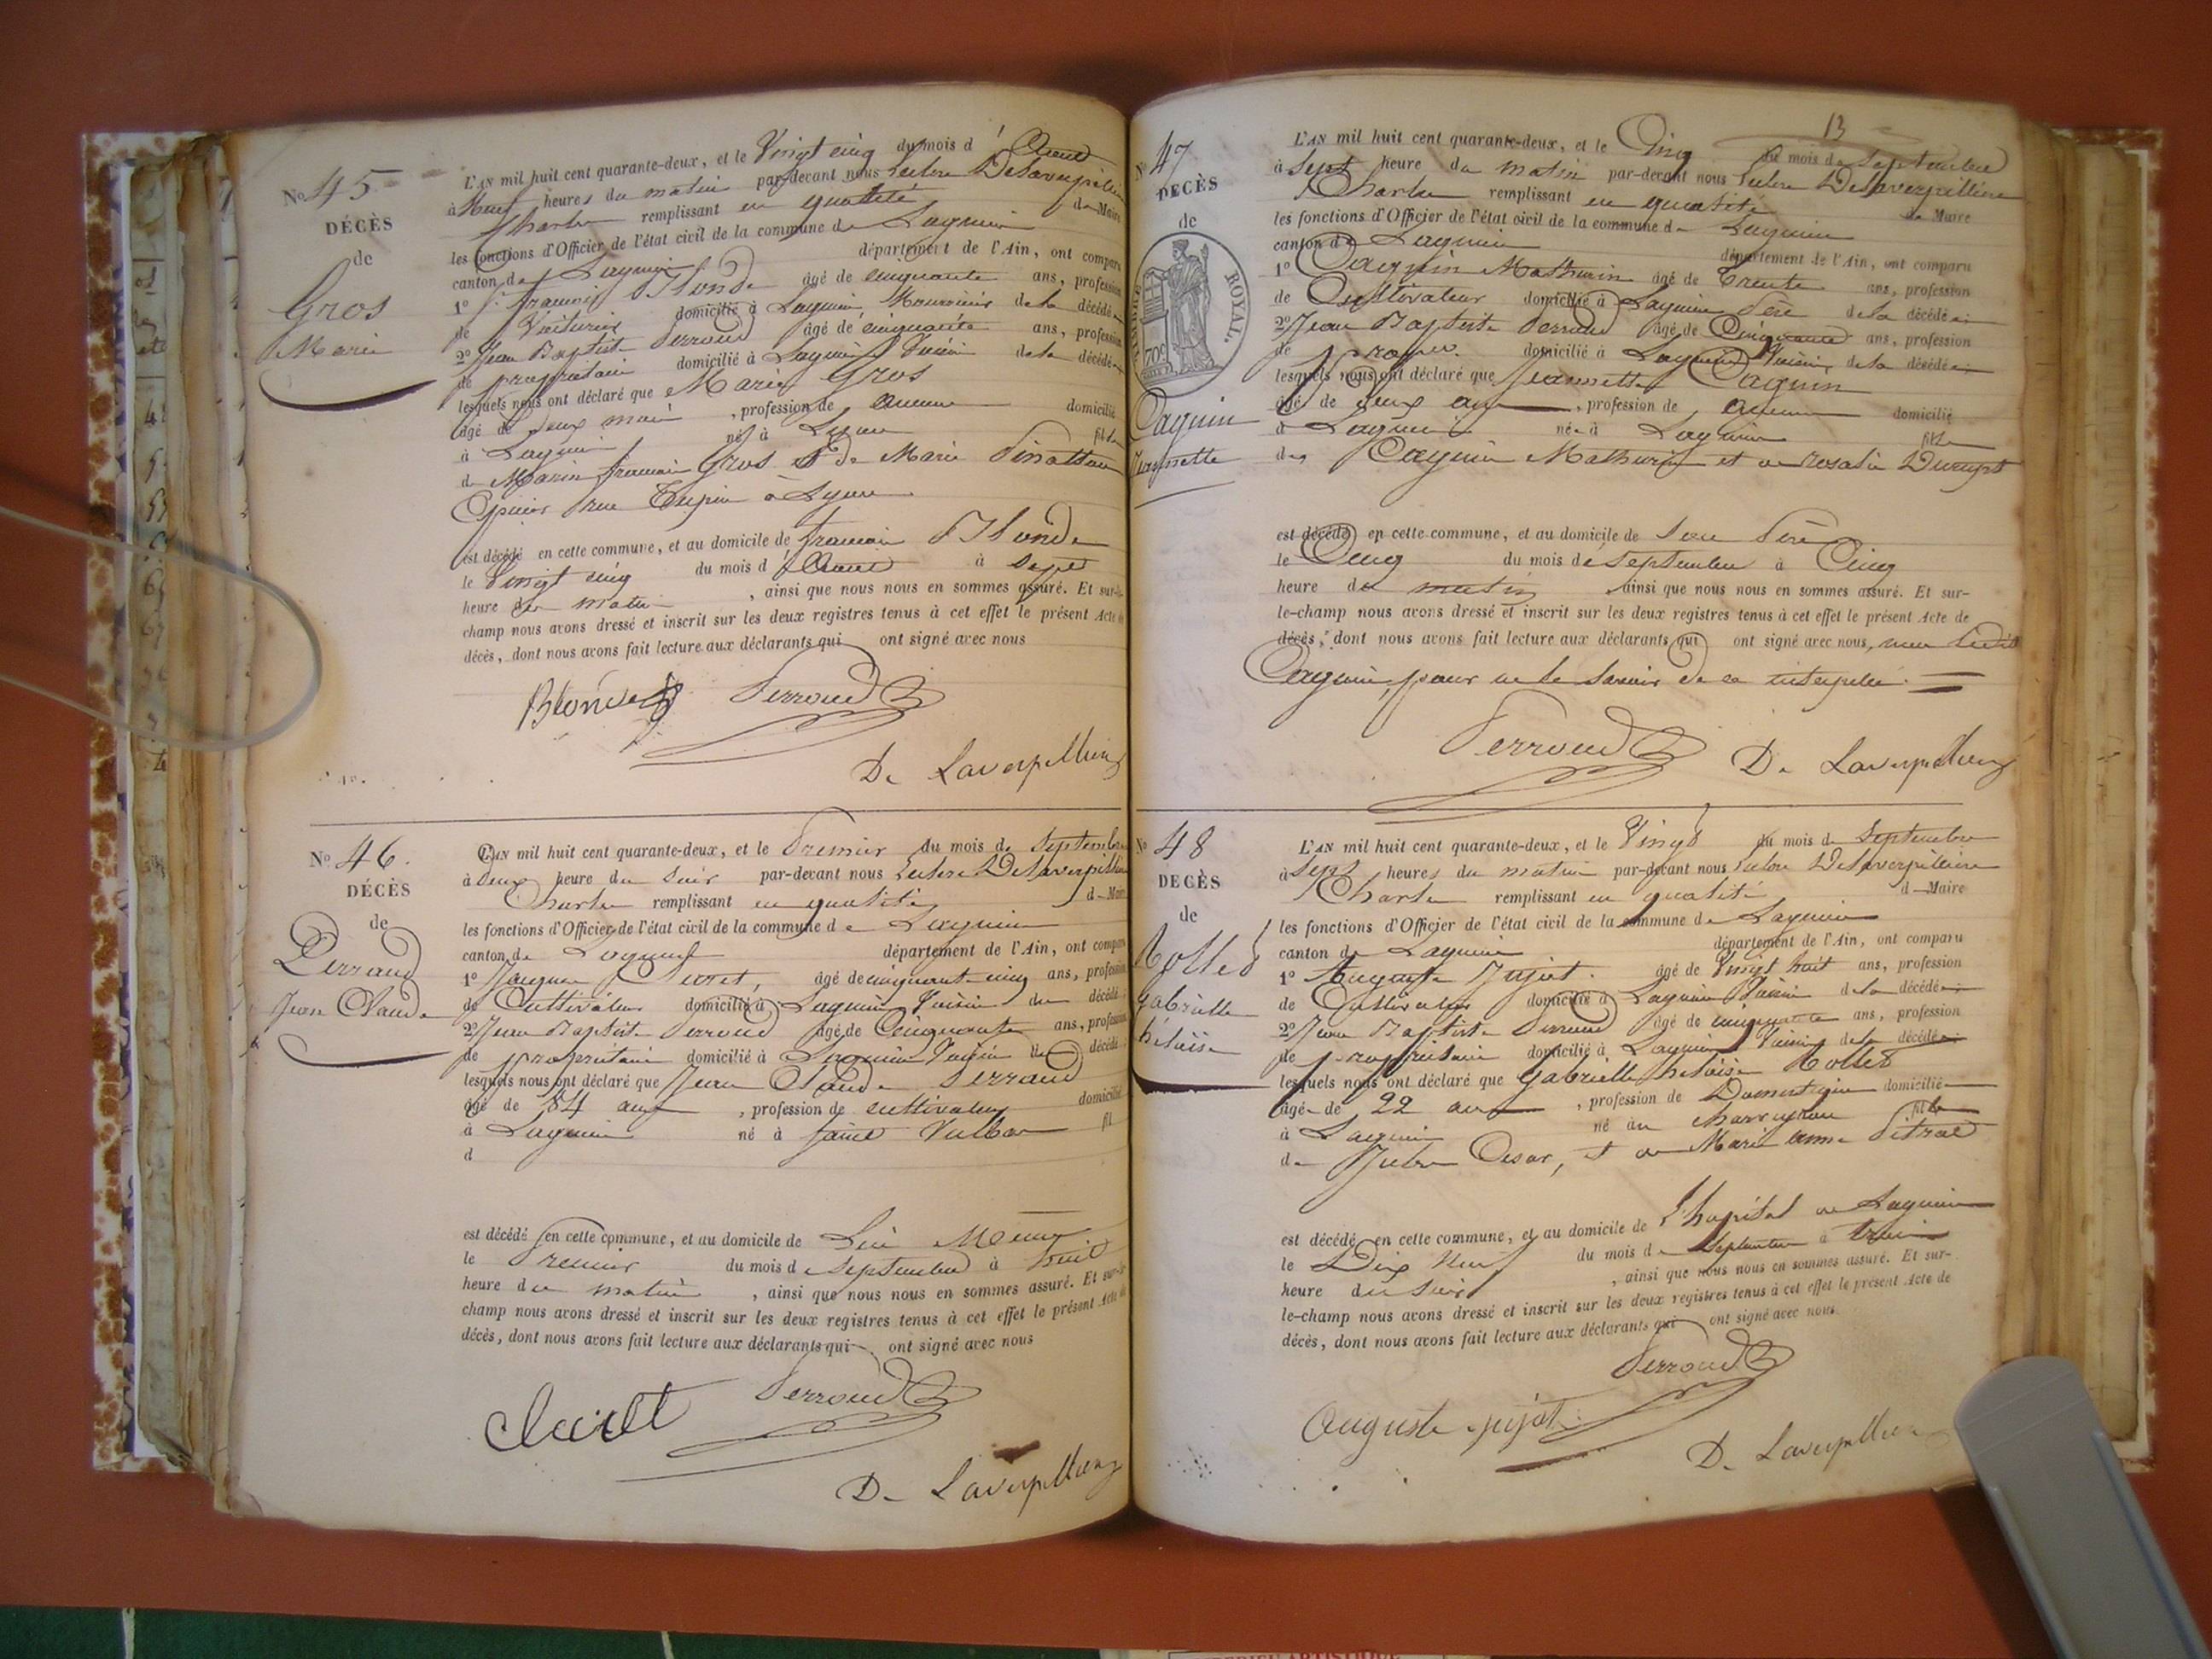 No 45
DÉCÈS
de
Gros
Marie
L'AN mil huit cent quarante-deux, et le Vingt cinq du mois d'Aout
à Huit heures du matin par-devant nous Delaverpillière
Charles remplissant en qualité de Maire
les fonctions d'Officier de l'état civil de la commune de Lagnieu
canton de Lagnieu département de l'Ain, ont comparu
1° françois Blonde âgé de cinquante ans, profession
de Voiturier domicilié à Lagnieu, Nourricier de la décédée
2° Jean Baptiste Perroud âgé de cinquante ans, profession
de propriétaire domicilié à Lagnieu Voisin de la décédée
lesquels nous ont déclaré que Marie Gros
âgé de Deux mois, profession de Aucune domicilié
à Lagnieu né à Lyon fille
de Marin françois Gros & de Marie
Epicier rue Tupin à Lyon
est décédé en cette commune, et au domicile de françois Blonde
le Vingt cinq du mois d'Aout à Sept
heure du matin, ainsi que nous nous en sommes assuré. Et sur-le-
champ nous avons dressé et inscrit sur les deux registres tenus à cet effet le présent Acte de
décès, dont nous avons fait lecture aux déclarants qui ont signé avec nous
Perroud
De Laverpilliere
No 46.
DÉCÈS
de
Perraud
Jean Claude
L'AN mil huit cent quarante-deux, et le Premier du mois de Septembre
à deux heure du soir par-devant nous Delaverpillière
Charles remplissant en qualité d Maire
les fonctions d'Officier de l'état civil de la commune de Lagnieu
canton de Lagnieu département de l'Ain, ont comparu
1° Jacques âgé de cinquante-cinq ans, profession
de Cultivateur domicilié à Lagnieu Voisin du décédé
2° Jean Baptiste Perroud âgé de Cinquante ans, profession
de propriétaire domicilié à Lagnieu Voisin du décédé
lesquels nous ont déclaré que Jean Claude Perraud
âgé de 84 ans, profession de cultivateur domicilié
à Lagnieu né à Saint Vulbas fil
d
est décédé en cette commune, et au domicile de Lui Même
le Premier du mois de Septembre à huit
heure du matin, ainsi que nous nous en sommes assuré. Et sur-le-
champ nous avons dressé et inscrit sur les deux registres tenus à cet effet le présent Acte de
décès, dont nous avons fait lecture aux déclarants qui ont signé avec nous
Perroud
De Laverpilliere
13
No 47
DÉCÈS
de
TIMBRE ROYAL.
70c
Caguin
Jeannette
L'AN mil huit cent quarante-deux, et le Cinq du mois de Septembre
à Sept heure du matin par-devant nous Delaverpillière
Charles remplissant en qualité de Maire
les fonctions d'Officier de l'état civil de la commune de Lagnieu
canton de Lagnieu département de l'Ain, ont comparu
1° Caguin Mathurin âgé de Trente ans, profession
de Cultivateur domicilié à Lagnieu Père de la décédée
2° Jean Baptiste Perroud âgé de Cinquante ans, profession
de domicilié à Lagnieu Voisin de la décédée
lesquels nous ont déclaré que Jeannette Caguin
âgé de deux ans, profession de Aucune domicilié
à Lagnieu née à Lagnieu fille
de Caguin Mathurin et de rosalie
est décédé en cette commune, et au domicile de Son Père
le Cinq du mois de Septembre à Cinq
heure du matin ainsi que nous nous en sommes assuré. Et sur-
le-champ nous avons dressé et inscrit sur les deux registres tenus à cet effet le présent Acte de
décès, dont nous avons fait lecture aux déclarants qui ont signé avec nous, non Ledit
Caguin, pour ne le Savoir de ce interpellé.
Perroud
De Laverpilliere
No 48
DÉCÈS
de
Collet
Gabrielle
héloïse
L'AN mil huit cent quarante-deux, et le Vingt du mois d Septembre
à Sept heures du matin par-devant nous Delaverpillière
Charles remplissant en qualité d Maire
les fonctions d'Officier de l'état civil de la commune de Lagnieu
canton de Lagnieu département de l'Ain, ont comparu
1° Auguste Jujat. âgé de Vingt huit ans, profession
de Cultivateur domicilié à Lagnieu Voisin de la décédée
2° Jean Baptiste Perroud âgé de cinquante ans, profession
de propriétaire domicilié à Lagnieu Voisin de la décédée
lesquels nous ont déclaré que Gabrielle héloïse Collet
âgé de 22 ans, profession de Domestique domicilié
à Lagnieu né au fille
de Jules Cesar, et de Marie Anne
est décédé en cette commune, et au domicile de L'hopital de Lagnieu
le Dix Neuf du mois de Septembre à
heure du Soir, ainsi que nous nous en sommes assuré. Et sur-
le-champ nous avons dressé et inscrit sur les deux registres tenus à cet effet le présent Acte de
décès, dont nous avons fait lecture aux déclarants qui ont signé avec nous
Perroud
Auguste jujat
De Laverpilliere